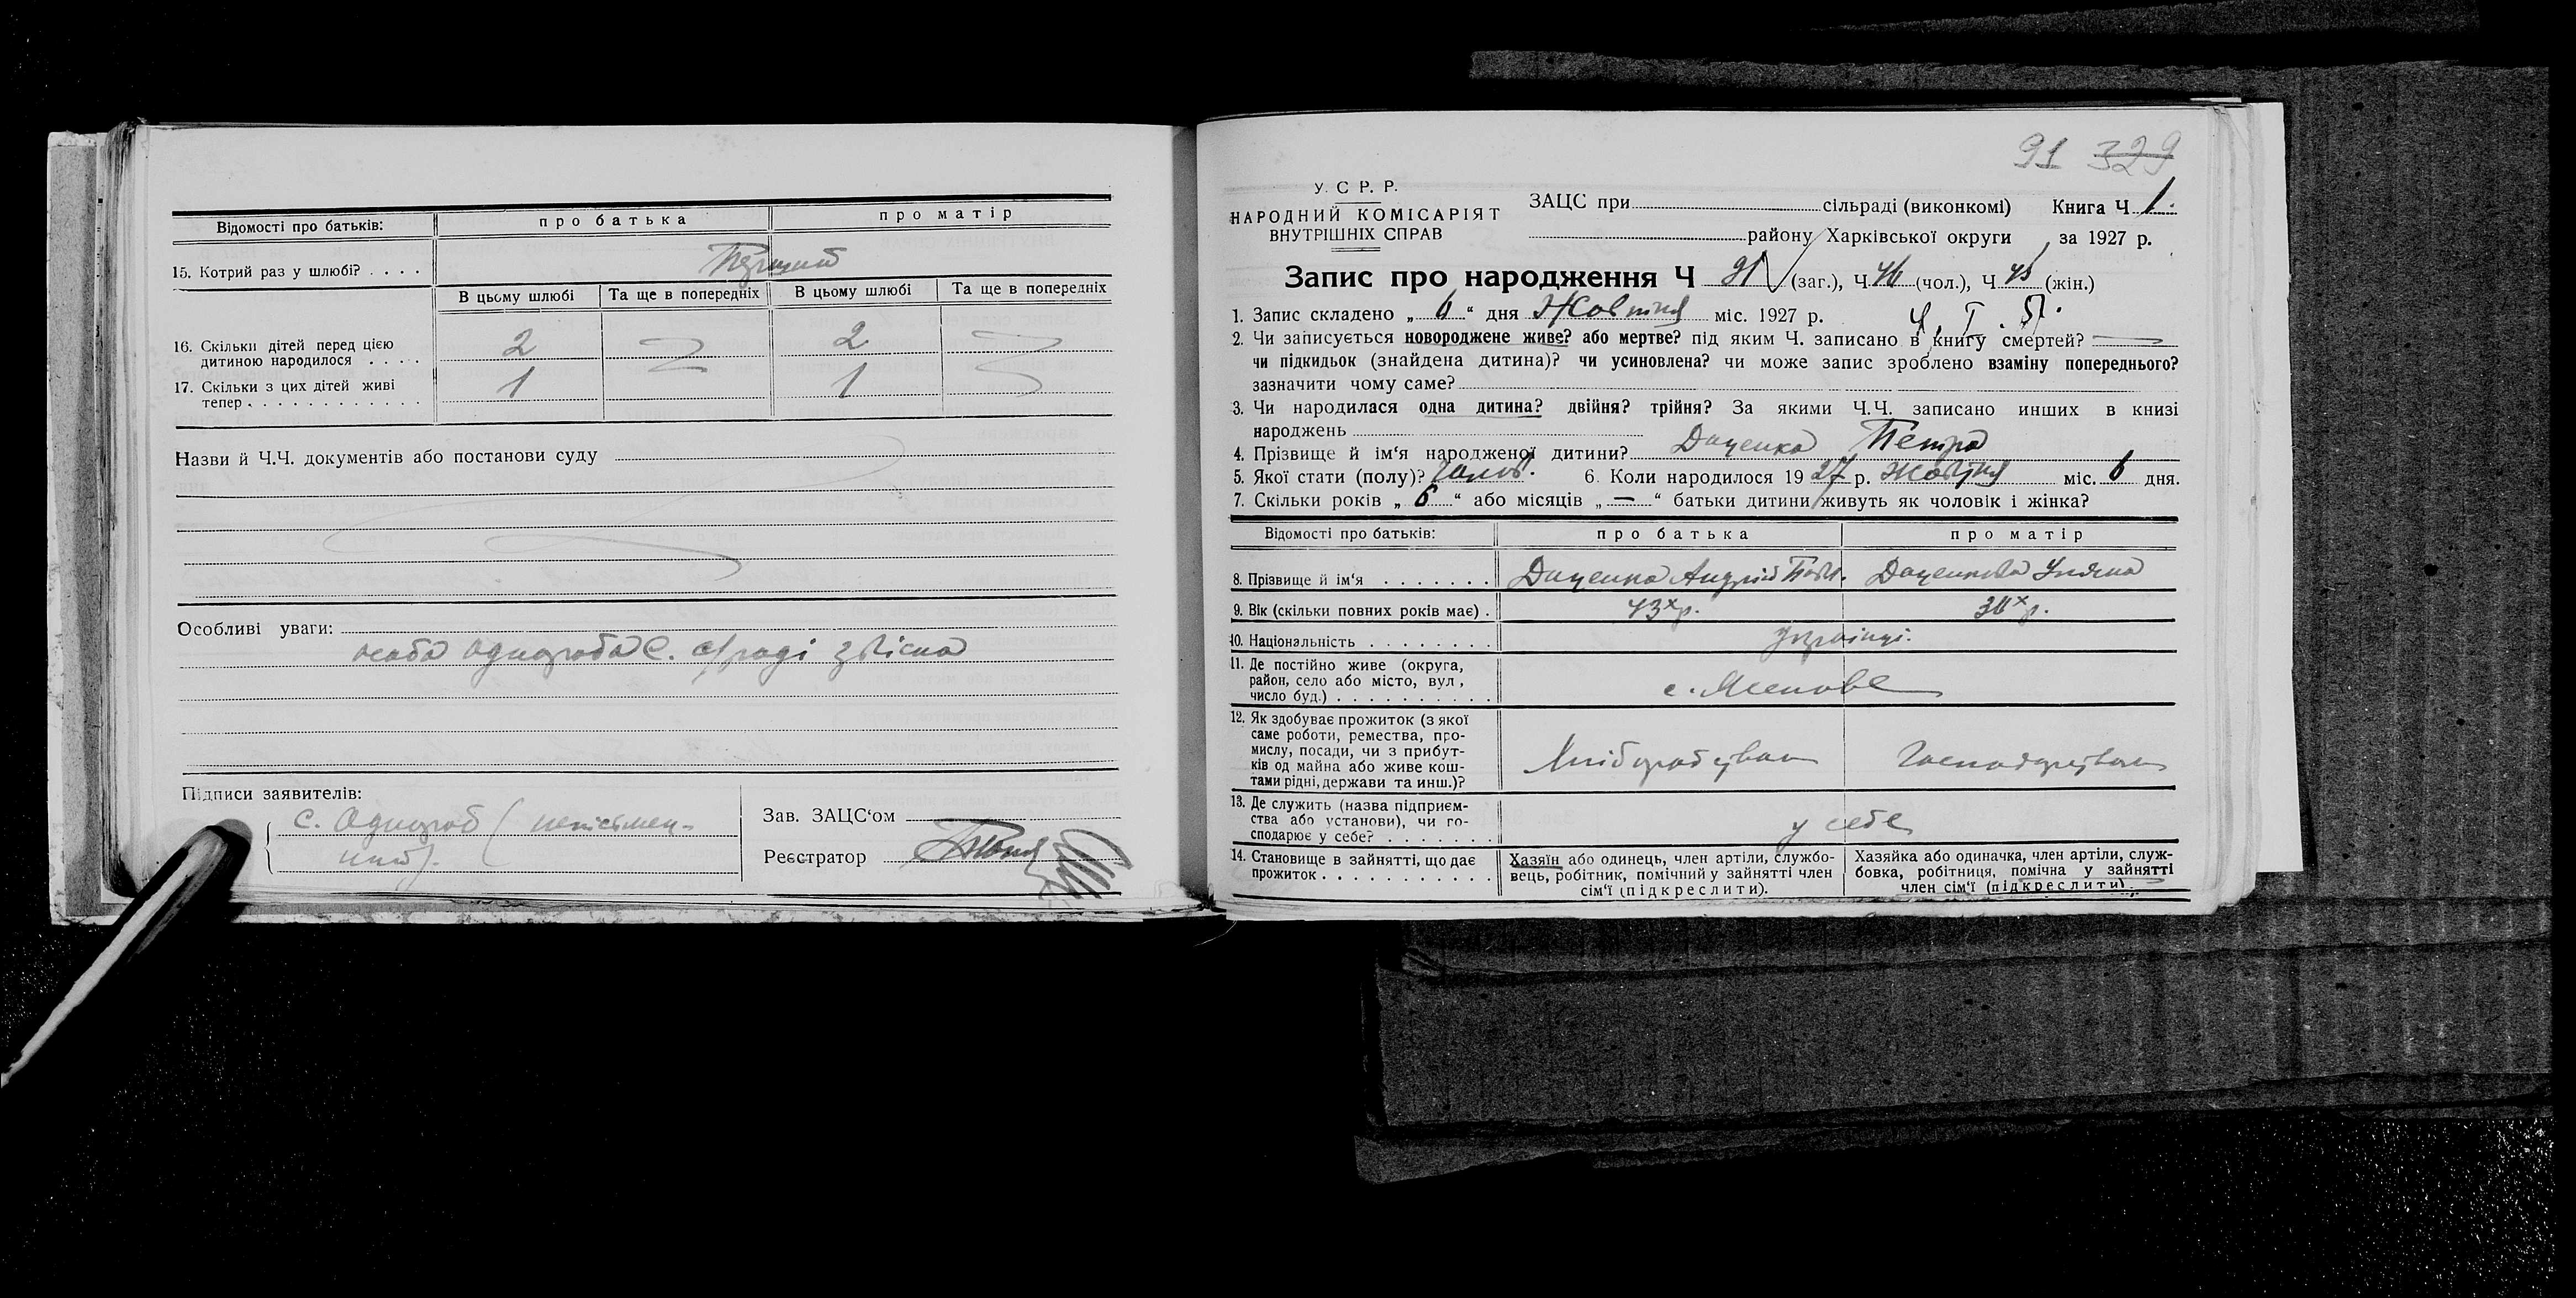 Відомості про батьків: про батька про матір
15. Котрий раз у шлюбі? . . . . Перший
В цьому шлюбі Та ще в попередніх В цьому шлюбі Та ще в попередніх
16. Скільки дітей перед цією
дитиною народилося . . . . 2 2
17. Скільки з цих дітей живі
тепер . . . . . . . . . . . . . 1 1
Назви й Ч.Ч. документів або постанови суду
Особливі уваги:
особа одногроба С. с/раді звісна
Підписи заявителів:
с. Одногроб (неписьмен-
ний).
Зав. ЗАЦС‘ом
Реєстратор
91 329
У. С Р. Р.
НАРОДНИЙ КОМІСАРІЯТ
ВНУТРІШНІХ СПРАВ
ЗАЦС при сільраді (виконкомі) Книга Ч 1.
району Харківської округи за 1927 р.
Запис про народження Ч 91 (заг.), Ч 46 (чол.), Ч 45 (жін.)
1. Запис складено „ 6 “ дня Жовтня міс. 1927 р.
2. Чи записується новороджене живе? або мертве? під яким Ч. записано в книгу смертей?
чи підкидьок (знайдена дитина)? чи усиновлена? чи може запис зроблено взаміну попереднього?
зазначити чому саме?
3. Чи народилася одна дитина? двійня? трійня? За якими Ч.Ч. записано инших в книзі
народжень
4. Прізвище й ім‘я народженої дитини? Даценко Петро
5. Якої стати (полу)? Чолов. 6. Коли народилося 1927 р. Жовтня міс. 6 дня.
7. Скільки років „ 6 “ або місяців „ — “ батьки дитини живуть як чоловік і жінка?
Відомості про батьків: про батька про матір
8. Прізвище й ім‘я . . . . . . . Даценко Андрій Павл. Даценкова Уляна
9. Вік (скільки повних років має) . 43х р. 36х р.
10. Національність . . . . . . . . . Українці.
11. Де постійно живе (округа,
район, село або місто, вул,
число буд.) . . . . . . . . . . .
12. Як здобуває прожиток (з якої
саме роботи, ремества, про-
мислу, посади, чи з прибут-
ків од майна або живе кош-
тами рідні, держави та инш.)? Хліборобством Господарством
13. Де служить (назва підприєм-
ства або установи), чи го-
сподарює у себе? . . . . . . . у себе
14. Становище в зайнятті, що дає
прожиток . . . . . . . . . . . .
Хазяїн або одинець, член артіли, службо-
вець, робітник, помічний у зайнятті член
сім‘ї (підкреслити).
Хазяйка або одиначка, член артіли, служ-
бовка, робітниця, помічна у зайнятті
член сім‘ї (підкреслити).